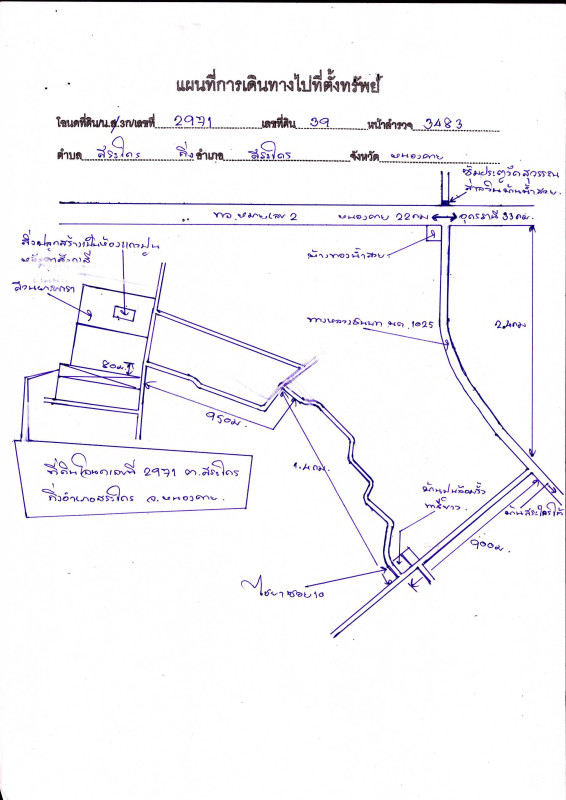 แผนที่การเดินทางไปที่ตั้งทรัพย์
โฉนดที่ดิน/น.ส.3ก/เลขที่ 2971 เลขที่ดิน 39 หน้าสำรวจ 3483
ตำบล สระใคร กิ่งอำเภอ สระใคร จังหวัด หนองคาย
ซุ้มประตูวัดสุวรรณ
บ้านน้ำสวย
ทล.หมายเลข 2 หนองคาย 22 กม. อุดรธานี 33 กม.
สิ่งปลูกสร้างเป็นห้องแถวปูน
หลังคาสังกะสี
สวนยางพารา
ห้างทองน้ำสวย
ทางหลวงชนบท นค. 1025
2.4 กม.
80 ม.
950 ม.
1.4 กม.
ที่ดินโฉนดเลขที่ 2971 ต.สระใคร
กิ่งอำเภอสระใคร จ.หนองคาย
บ้านปูนล้อมรั้ว
ทาสีขาว
บ้านสระใครใต้
900 ม.
ไชยาซอย 10